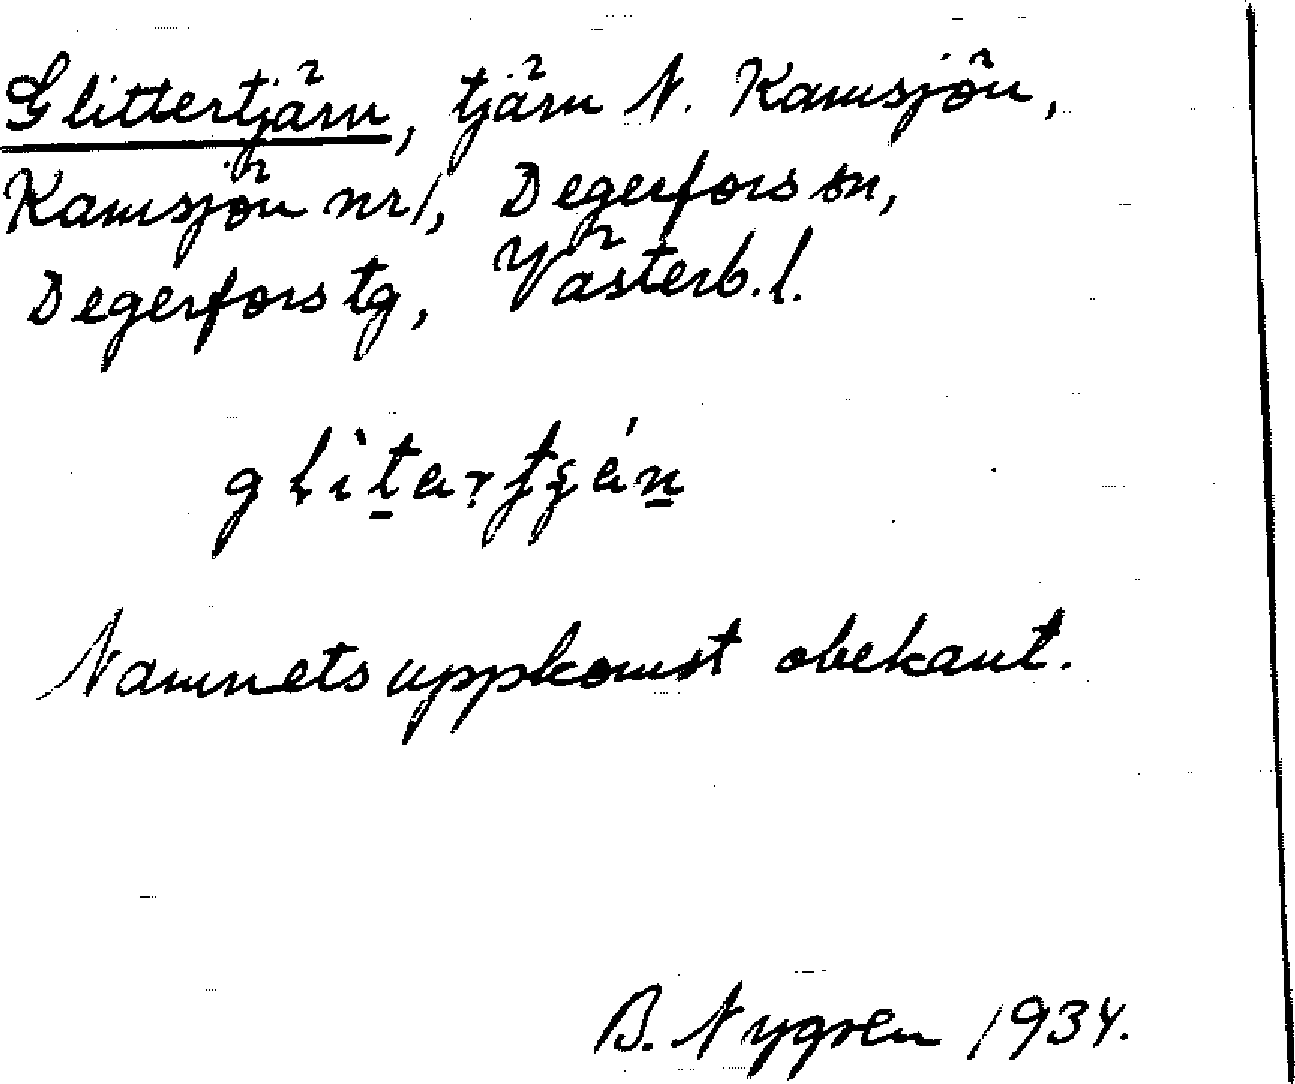 Glittertjärn, tjärn N. Kamsjön,
Kamsjön nr 1, Degerfors sn,
Degerfors tg, Västerb. l.
Namnets uppkomst obekant.
B. Nygren 1934.